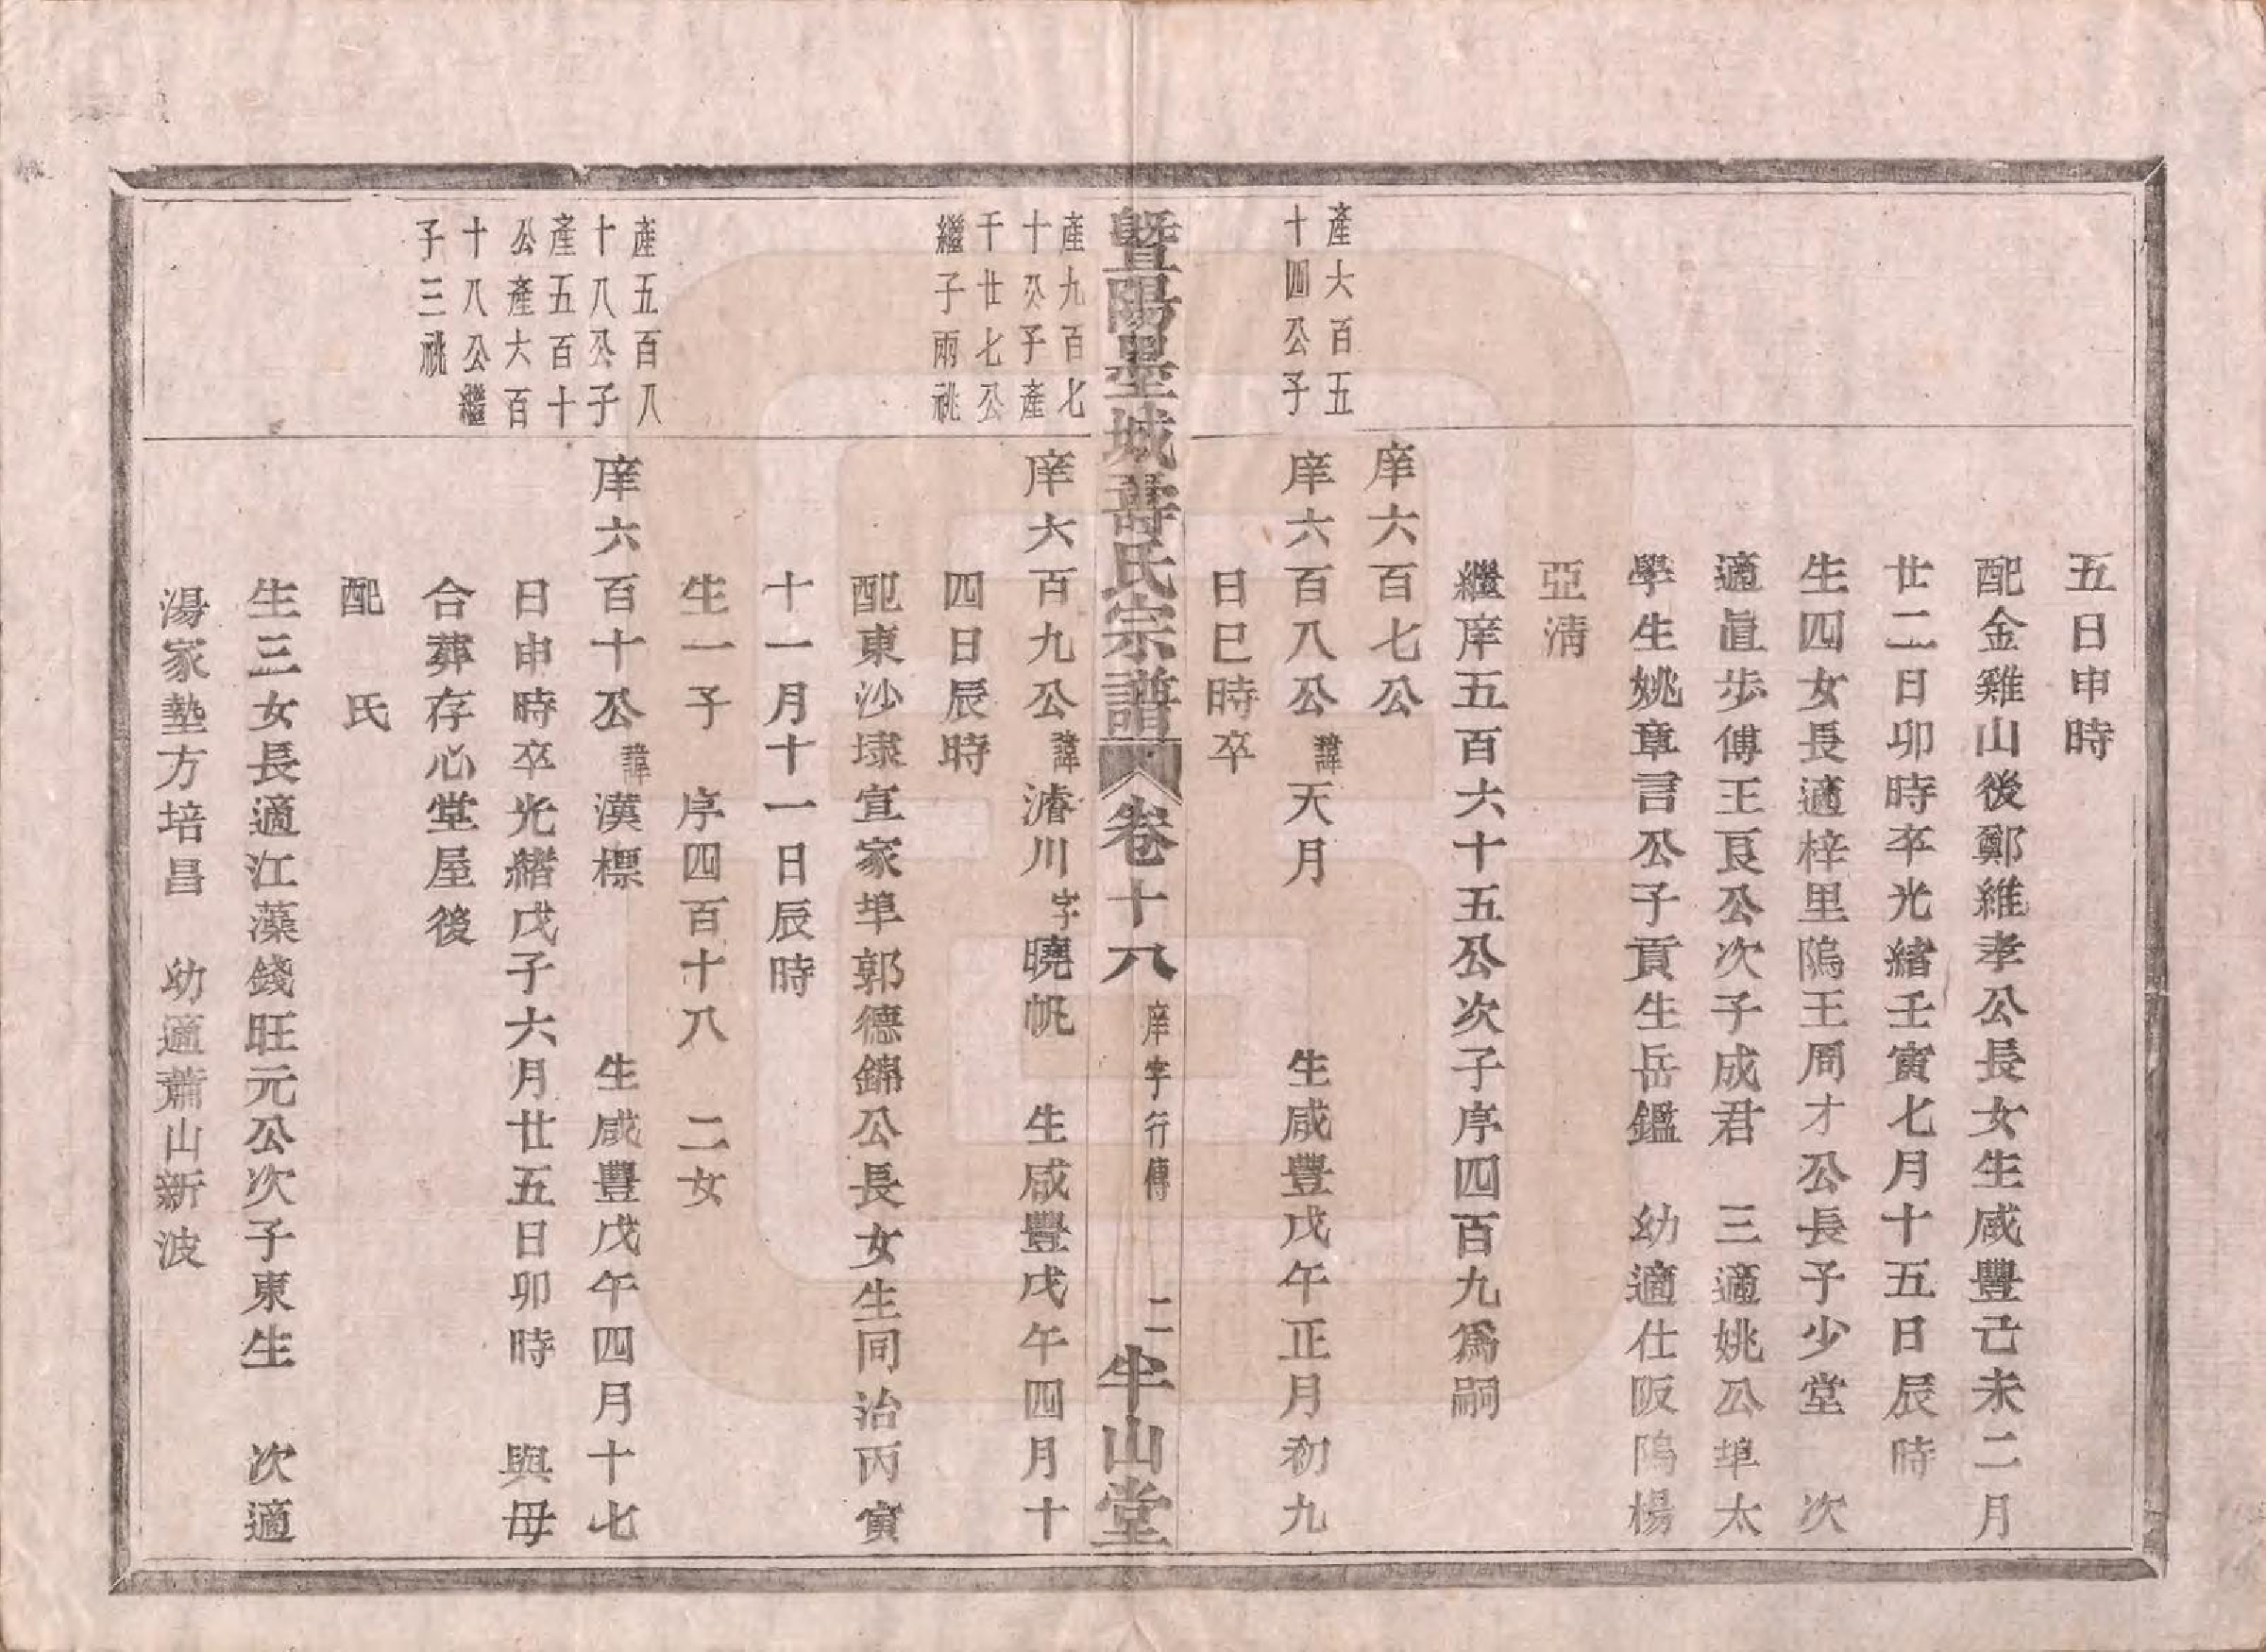 五日申時
配金雞山後鄭維孝公長女生咸豐己未二月
廿二日卯時卒光緖壬寅七月十五日辰時
生四女長適梓里隖王周才公長子少堂 次
適眞步傅王良公次子成君 三適姚公埠太
學生姚章言公子貢生岳鑑 幼適仕阪隖楊
亞淸
繼庠五百六十五公次子序四百九爲嗣
庠六百七公
產大百五
十四公子
庠六百八公諱天月 生咸豐戊午正月初九
日巳時卒
暨陽墨城壽氏宗譜 卷十八 庠字行傳 二 半山堂
產九百七
十公子產
千廿七公
繼子兩祧
庠六百九公諱濬川字曉帆 生咸豐戊午四月十
四日辰時
配東沙埭宣家埠郭德錦公長女生同治丙寅
十一月十一日辰時
生一子 序四百十八 二女
產五百八
十八公子
產五百十
公產大百
十八公繼
子三祧
庠六百十公諱漢標 生咸豐戊午四月十七
日申時卒光緖戊子六月廿五日卯時 與母
合葬存心堂屋後
配 氏
生三女長適江藻錢旺元公次子東生 次適
湯家墊方培昌 幼適蕭山新波